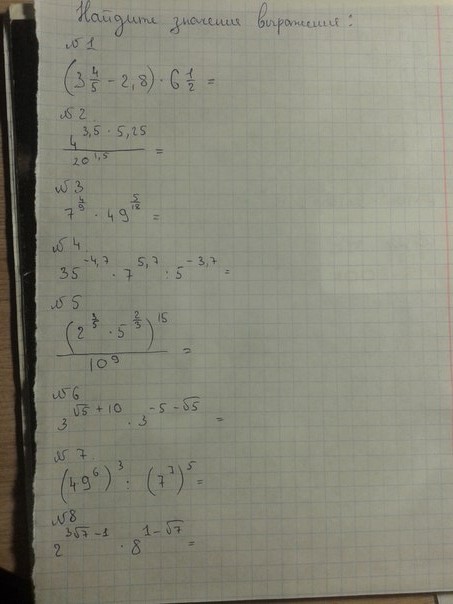 Найдите значения выражения:
№1
(3 4/5 - 2,8) · 6 1/2 =
№2.
4^(3,5 · 5,25) / 20^(1,5) =
№3
7^(4/9) · 49^(5/18) =
№4.
35^(-4,7) · 7^(5,7) : 5^(-3,7) =
№5
(2^(3/5) · 5^(2/3))^15 / 10^9 =
№6
3^(√5 + 10) · 3^(-5 - √5) =
№7.
(49^6)^3 : (7^7)^5 =
№8
2^(3√7 - 1) · 8^(1 - √7) =